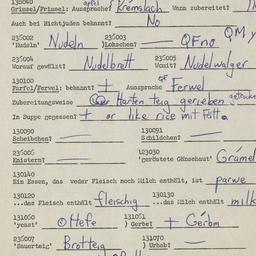 130040 apfel
Grimsel/Primsel: Aussprache? Kremslach Wann zubereitet?
Auch bei Nichtjuden bekannt? No
235002 235003 QM y
'Nudeln' Nudeln )Lokschen? — QFno
235004 235005
Vorauf gewälzt? Nudelbrett Womit? Nudelwalger
130100
Farfel/Fervel: bekannt? + Aussprache Ferwel
Zubereitungsweise Harten Teig gerieben getrocknet
In Suppe gegessen? + or like rice mit Fett.
130090 130091
Scheibchen? — Schildchen? —
235006 123030
Knistern? — 'geröstete Gänsehaut' Gramel
130140
Ein Essen, das weder Fleisch noch Milch enthält, ist parwe
130120 130130
...das Fleisch enthält fleischig ...das Milch enthält milk
131050 131051
'yeast' Hefe ) Gerbet + Gerbm
235007 131070
'Sauerteig' Brotteig ) Urhob? —